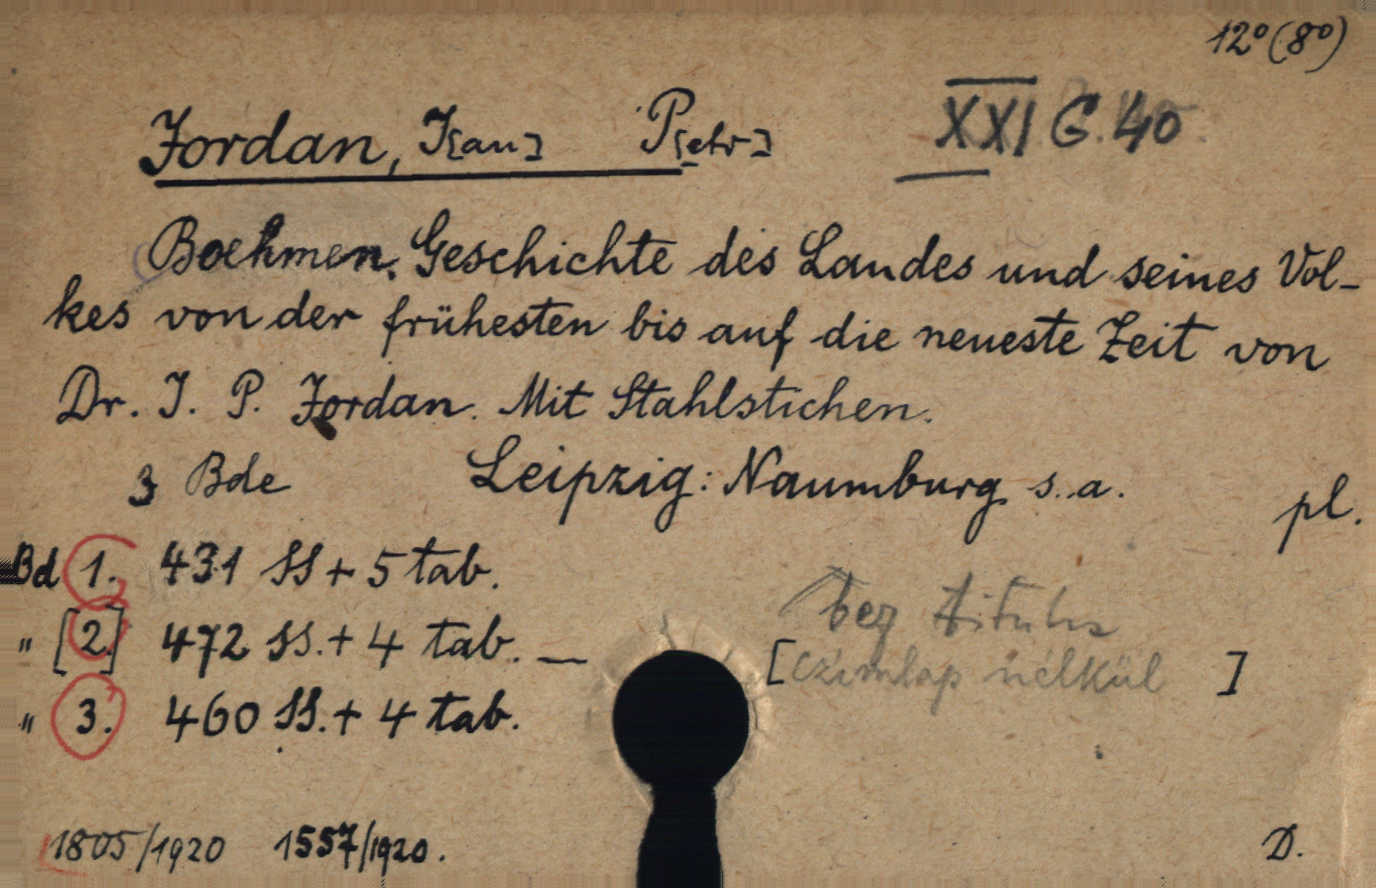 12º(8º)
XXI G. 40
Jordan, J[an] P[etr]
Boehmen. Geschichte des Landes und seines Vol-
kes von der frühesten bis auf die neueste Zeit von
Dr. J. P. Jordan. Mit Stahlstichen.
3 Bde Leipzig: Naumburg s. a.
pl.
Bd 1. 431 SS + 5 tab.
" [2.] 472 SS. + 4 tab. —
bez titulu
[Czímlap nélkül]
" 3. 460 SS. + 4 tab.
1805/1920 1557/1920.
D.